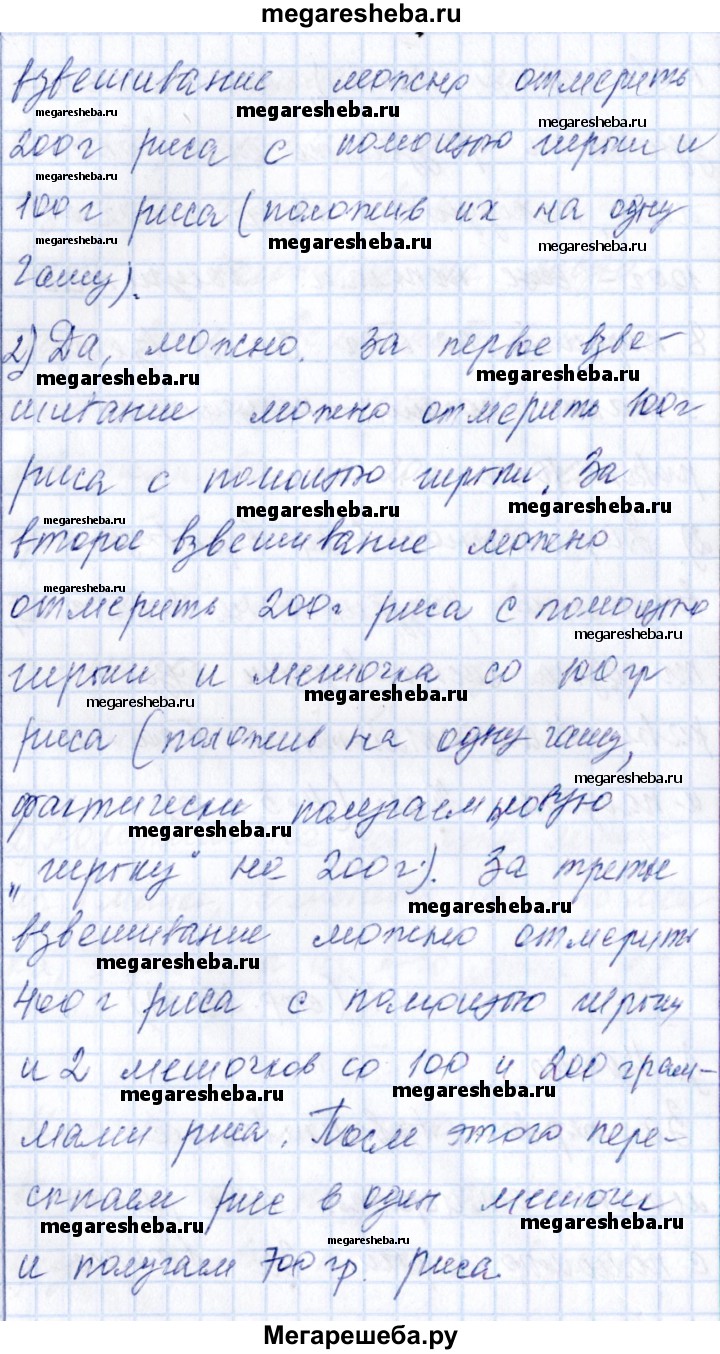 megaresheba.ru
взвешивание можно отмерить
megaresheba.ru megaresheba.ru megaresheba.ru
200г риса с помощью гирьки и
megaresheba.ru megaresheba.ru
100г риса (положив их на одну
megaresheba.ru megaresheba.ru megaresheba.ru
чашу).
2) Да, можно. За первое взве-
megaresheba.ru megaresheba.ru
шивание можно отмерить 100г
риса с помощью гирьки. За
megaresheba.ru megaresheba.ru megaresheba.ru
второе взвешивание можно
megaresheba.ru
отмерить 200г риса с помощью
megaresheba.ru
гирьки и мешочка со 100гр
megaresheba.ru megaresheba.ru
риса (положив на одну чашу,
megaresheba.ru
фактически получаем новую
megaresheba.ru
"гирьку" на 200г). За третье
megaresheba.ru
взвешивание можно отмерить
megaresheba.ru
400г риса с помощью гирьки
и 2 мешочков со 100 и 200 грам-
megaresheba.ru megaresheba.ru
мами риса. После этого пере-
сыпаем рис в один мешочек
megaresheba.ru megaresheba.ru megaresheba.ru
и получаем 700 гр. риса.
Мегарешеба.ру